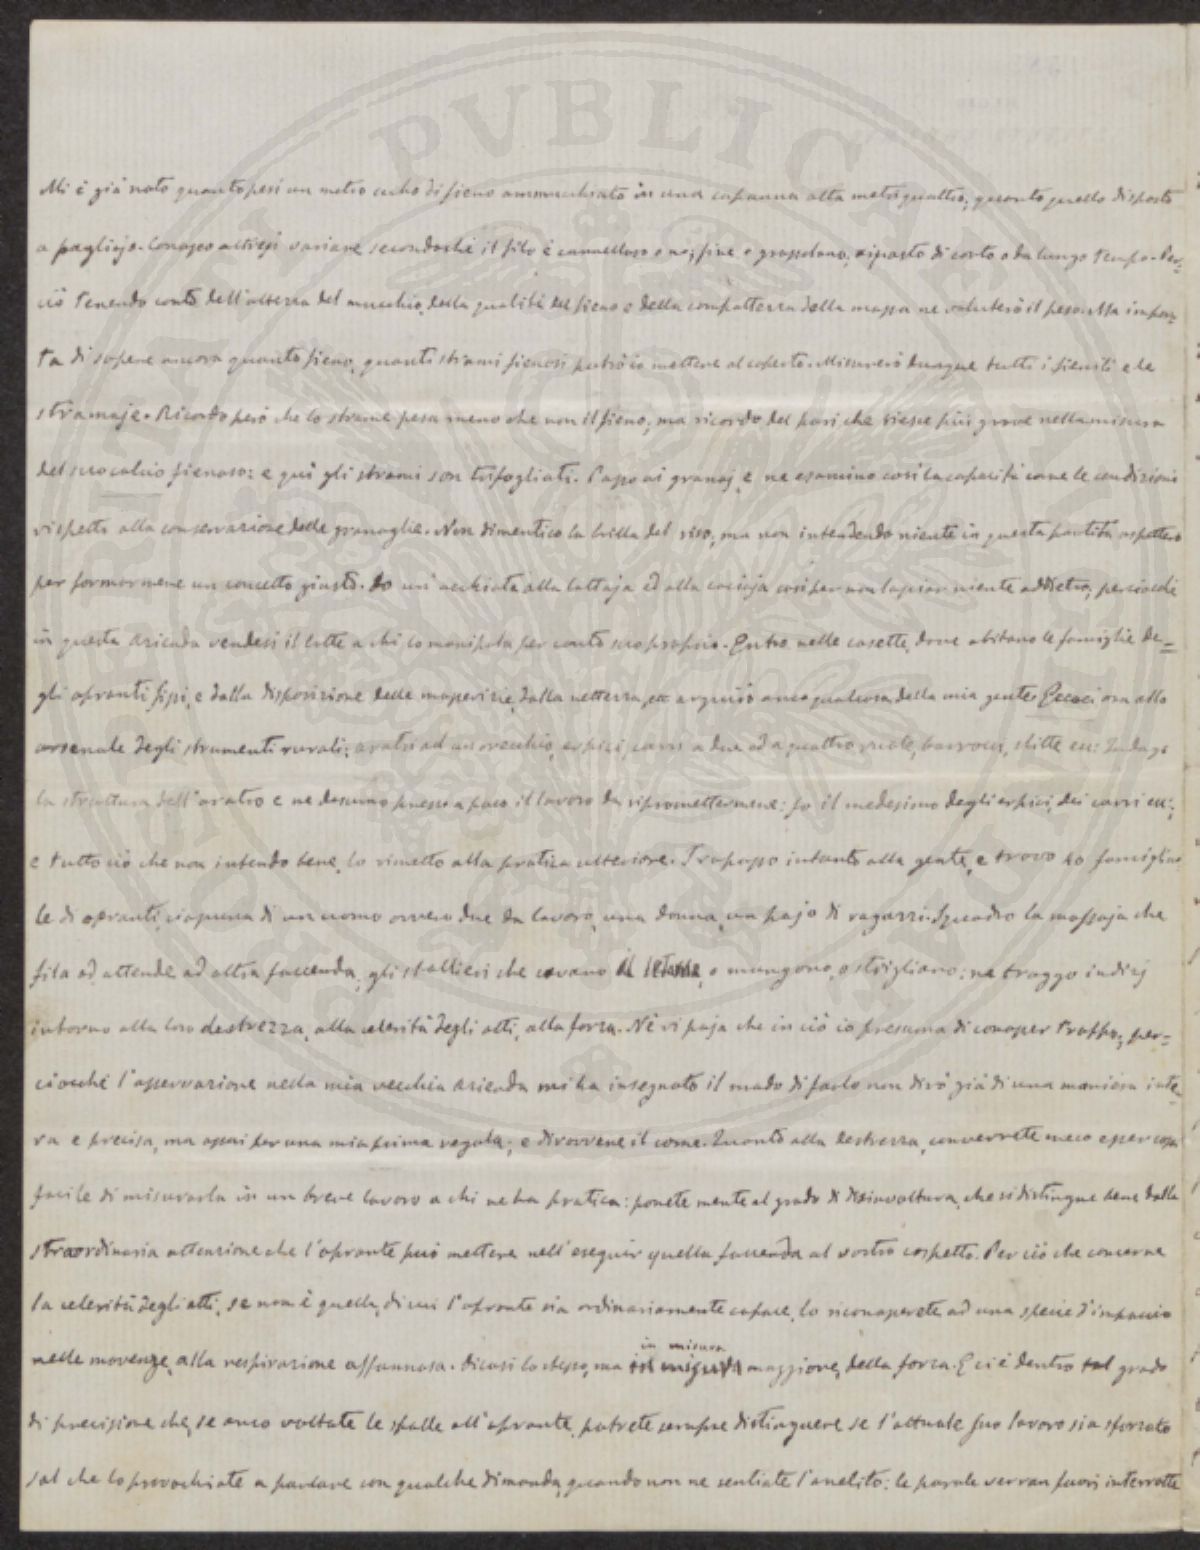 PVBLICAE
Mi è già noto quanto pesi un metro cubo di fieno ammucchiato in una capanna alta metri quattro; quanto quello disposto
a pagliajo. Conosco altresì variare secondochè il filo è cannelloso o no; fine o grossolano, riposto di corto o da lungo tempo. Per-
ciò tenendo conto dell'altezza del mucchio, della qualità del fieno e della compattezza della massa ne valuterò il peso. Ma impor-
ta di sapere ancora quanto fieno, quanti strami fienosi potrò io mettere al coperto. Misurerò dunque tutti i fienili e le
stramaje. Ricordo però che lo strame pesa meno che non il fieno; ma ricordo del pari che riesce più grave nella misura
del suo calcio fienoso: e quì gli strami son trifogliati. Passo ai granaj, e ne esamino così la capacità come le condizioni
rispetto alla conservazione delle granaglie. Non dimentico la brilla del riso; ma non intendendo niente in questa partita aspetterò
per formarmene un concetto giusto. Do un'occhiata alla lattaja ed alla caciaja così per non lasciar niente addietro, perciocchè
in questa azienda vendesi il latte a chi lo manipola per conto suo proprio. Entro nelle casette, dove abitano le famiglie de-
gli opranti fissi, e dalla disposizione delle masserizie, dalla nettezza, ec arguirò anco qualcosa della mia gente. Eccoci ora allo
arsenale degli strumenti rurali: aratri ad un orecchio, erpici, carri a due ed a quattro ruote, barrocci, slitte ec: Indago
la struttura dell'aratro e ne desumo presso a poco il lavoro da ripromettermene: fo il medesimo degli erpici, dei carri ec:;
e tutto ciò che non intendo bene, lo rimetto alla pratica ulteriore. Trapasso intanto alla gente, e trovo 20 famigliuo
le di opranti, ciascuna di un uomo ovvero due da lavoro, una donna, un pajo di ragazzi. Squadro la massaja che
fila od attende ad altra faccenda; gli stallieri che cavano il letame, o mungono, o strigliano: ne traggo indizj
intorno alla loro destrezza, alla celerità degli atti, alla forza. Nè vi paja che in ciò io presuma di conoscer troppo; per-
ciocchè l'osservazione nella mia vecchia azienda mi ha insegnato il modo di farlo non dirò già di una maniera inte-
ra e precisa, ma assai per una mia prima regola; e dirovvene il come. Quanto alla destrezza, converrete meco esser cosa
facile di misurarla in un breve lavoro a chi ne ha pratica: ponete mente al grado di disinvoltura, che si distingue bene dalla
straordinaria attenzione che l'oprante può mettere nell'eseguir quella faccenda al vostro cospetto. Per ciò che concerne
la celerità degli atti, se non è quella, di cui l'oprante sia ordinariamente capace, lo riconoscerete ad una specie d'impaccio
in misura
nelle movenze, alla respirazione affannosa. Dicasi lo stesso, ma in misura maggiore, della forza. E ci è dentro tal grado
di precisione che, se anco voltate le spalle all'oprante, potrete sempre distinguere se l'attuale suo lavoro sia sforzato
sol che lo provochiate a parlare con qualche dimanda, quando non ne sentiate l'anelito: le parole verran fuori interrotte